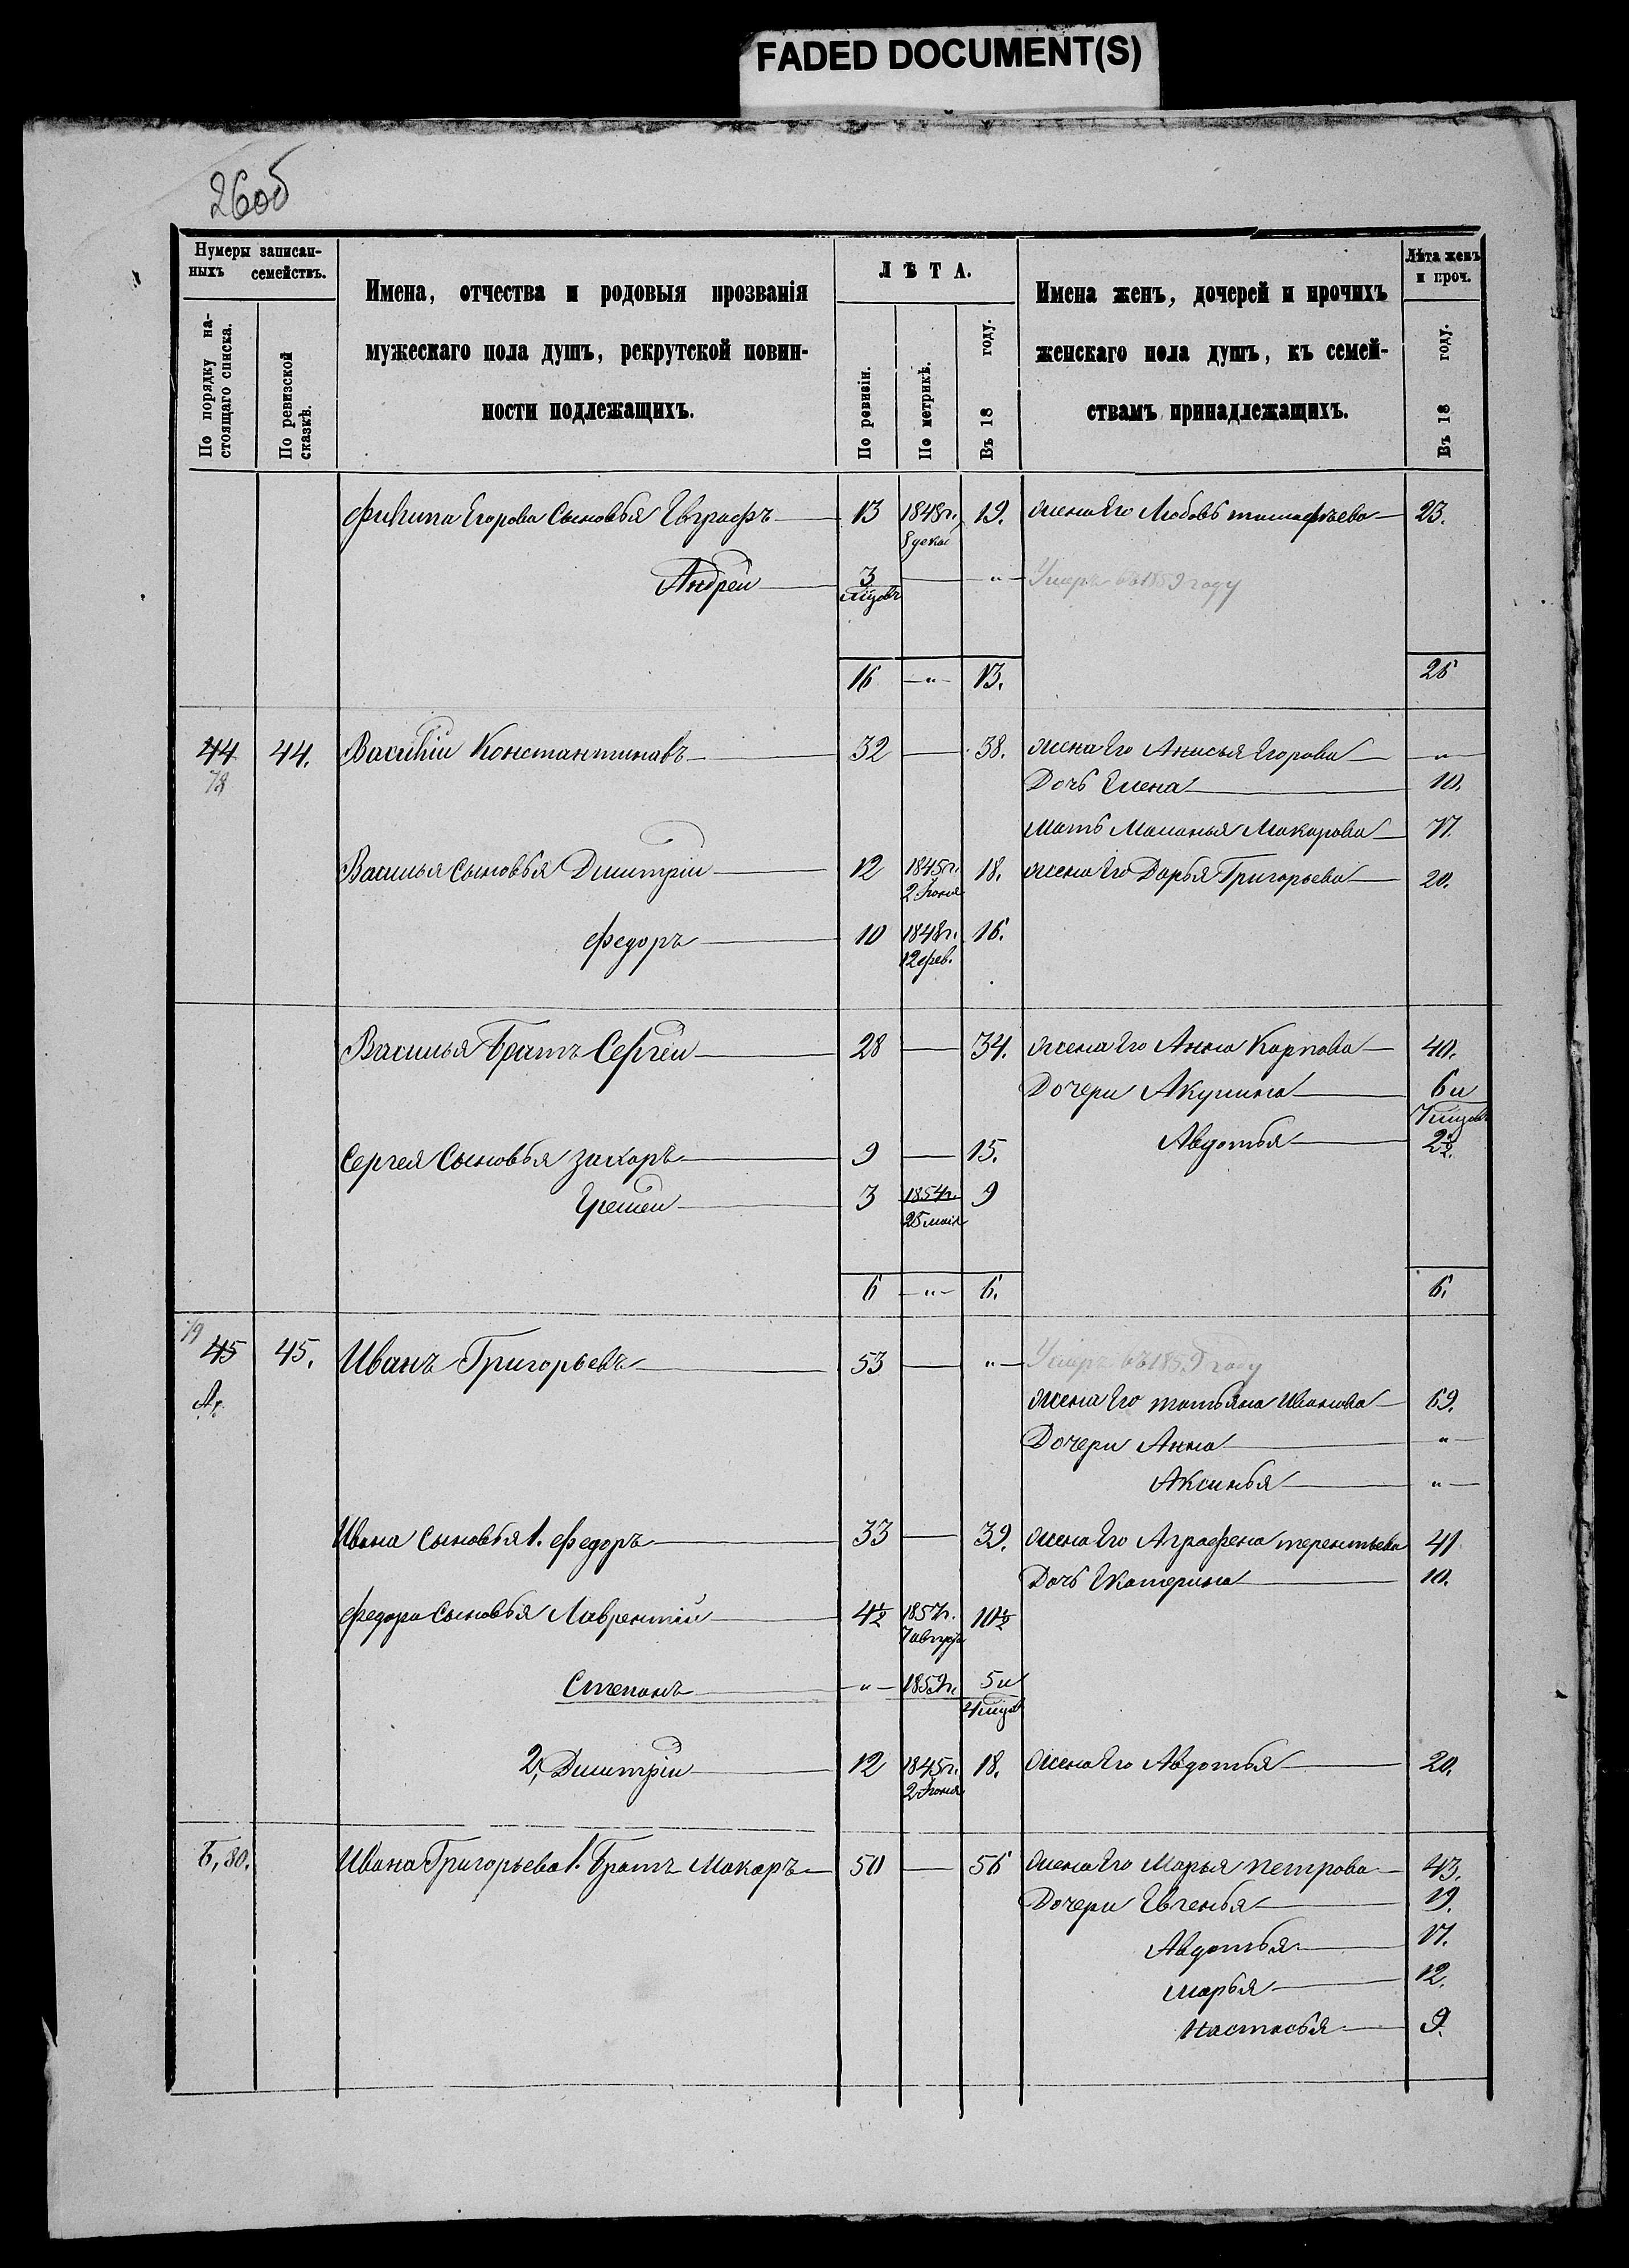 FADED DOCUMENT(S)
26об
Нумеры записан-
ныхъ семействъ.
По порядку на-
стоящаго списка.
По ревизской
сказкѣ.
Имена, отчества и родовыя прозванія
мужескаго пола душъ, рекрутской повин-
ности подлежащихъ.
ЛѢТА.
По ревизіи.
По метрикѣ.
Въ 18 году.
Имена женъ, дочерей и прочихъ
женскаго пола душъ, къ семей-
ствамъ принадлежащихъ.
Лѣта женъ
и проч.
Въ 18 году.
Филипа Егорова Сыновья Евграфъ 13 1848г. 19. жена Его Любовь 23.
8 дека
Андрей 3 " Умеръ въ 1859 году
мѣцовъ
16 " 13. 26
44 44. Василій Константиновъ 32 38. жена Его Анисья Егорова "
78 Дочь Елена 10.
мать Маланья Макарова 71.
Василья Сыновья Дмитрій 12 1845г. 18. жена Его Дарья Григорьева 20.
2 Іюня
Федоръ 10 1848г. 16.
12 фев.
Василья Братъ Сергей 28 34. жена Его Анна Карпова 40.
Дочери Акулина 6 и
7 мѣцовъ
Авдотья 2½.
Сергея Сыновья Захаръ 9 15.
Еремей 3 1854г. 9
25 маія
6 " 6. 6.
79
45 45. Иванъ Григорьевъ 53 " Умеръ въ 1859 году
А. жена Его татьяна Иванова 69.
Дочери Анна "
Аксинья "
Ивана Сыновья 1. Федоръ 33 39. жена Его Аграфена терентьева 41
Дочь Екатерина 10.
Федора Сыновья Лаврентій 4½ 1857г. 10½
7 августа
Степанъ " 1859г. 5 и
4 мѣцов
2, Дмитрій 12 1845г. 18. жена Его Авдотья 20.
2 Іюня
Б, 80. Ивана Григорьева 1. Братъ Макаръ 50 56 жена Его Марья петрова 43.
Дочери Евгенья 19.
Авдотья 17.
марья 12.
Настасья 9.